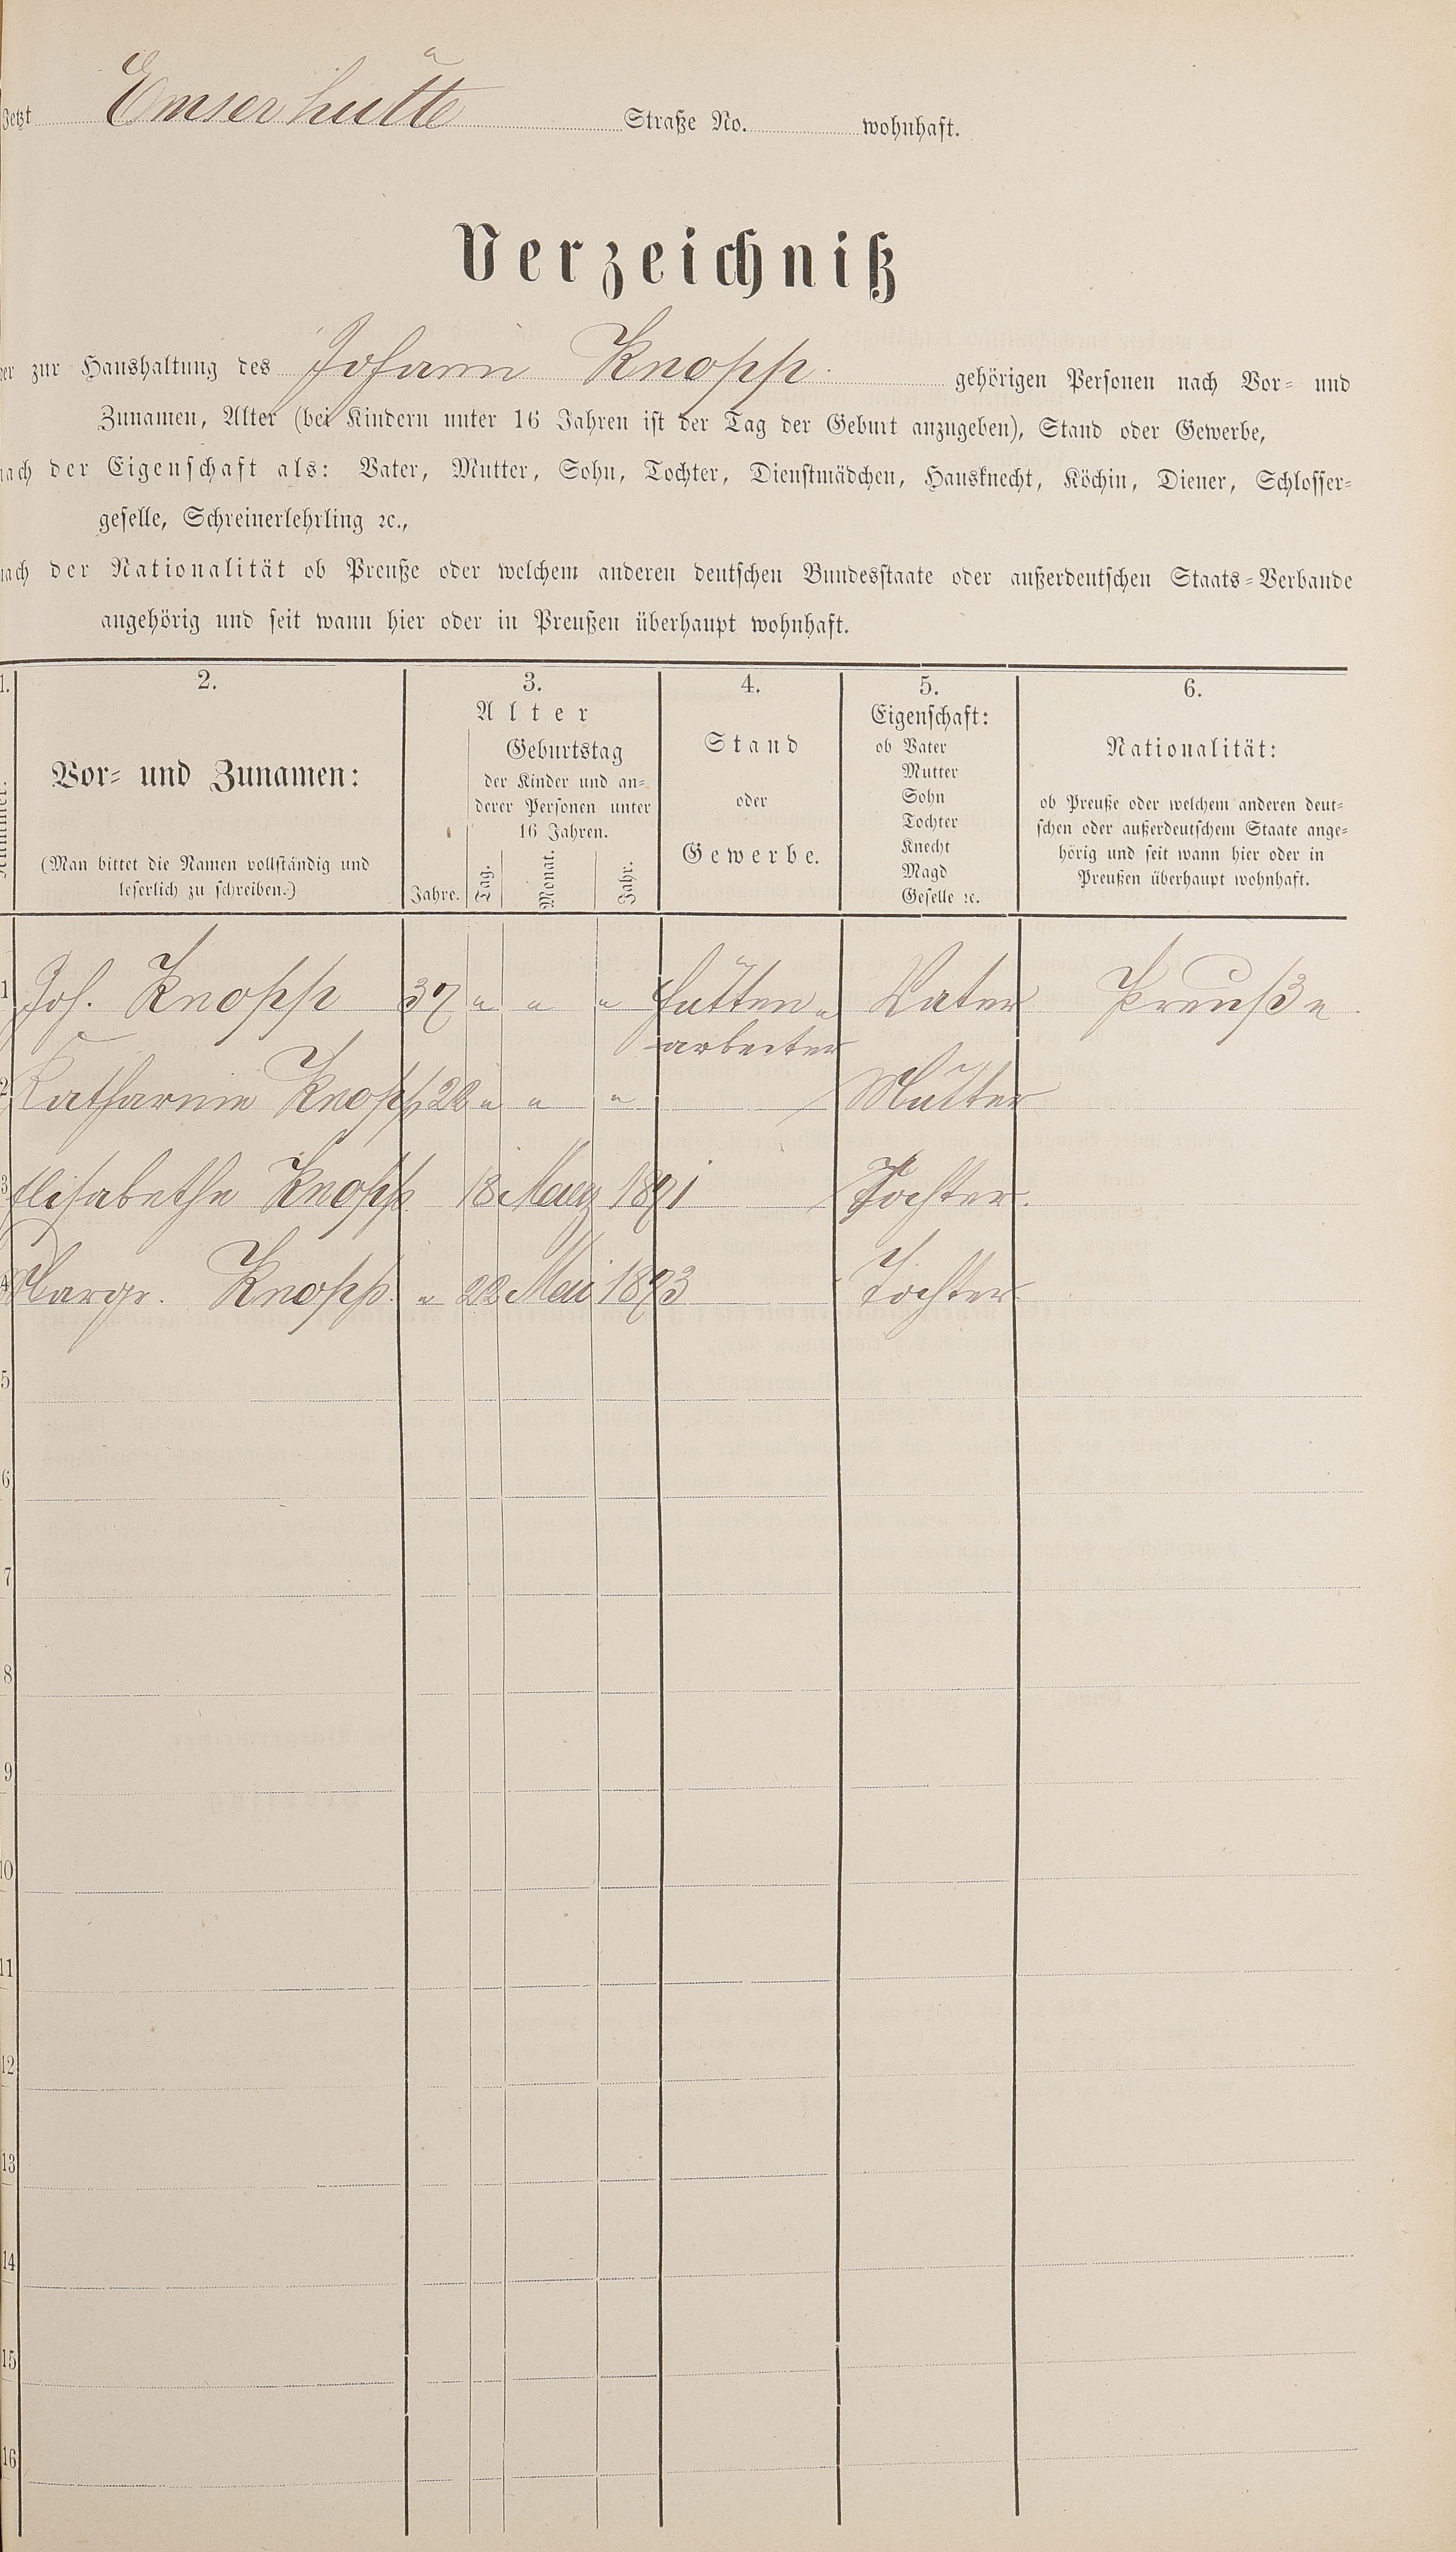 Jetzt Emserhütte Straße No. wohnhaft.
Verzeichniß
der zur Haushaltung des Johann Knopp. gehörigen Personen nach Vor- und
Zunamen, Alter (bei Kindern unter 16 Jahren ist der Tag der Geburt anzugeben), Stand oder Gewerbe,
nach der Eigenschaft als: Vater, Mutter, Sohn, Tochter, Dienstmädchen, Hausknecht, Köchin, Diener, Schlosser-
geselle, Schreinerlehrling ꝛc.,
nach der Nationalität ob Preuße oder welchem anderen deutschen Bundesstaate oder außerdeutschen Staats-Verbande
angehörig und seit wann hier oder in Preußen überhaupt wohnhaft.
1.
Nummer.
2.
Vor- und Zunamen:
(Man bittet die Namen vollständig und
leserlich zu schreiben.)
3.
Alter
Jahre.
Geburtstag
der Kinder und an-
derer Personen unter
16 Jahren.
Tag. Monat. Jahr.
4.
Stand
oder
Gewerbe.
5.
Eigenschaft:
ob Vater
Mutter
Sohn
Tochter
Knecht
Magd
Geselle ꝛc.
6.
Nationalität:
ob Preuße oder welchem anderen deut-
schen oder außerdeutschem Staate ange-
hörig und seit wann hier oder in
Preußen überhaupt wohnhaft.
1 Joh. Knopp 37 " " " Hütten= Vater Preuße.
arbeiter
2 Katharine Knopp 28 " " " Mutter
3 Elisabethe Knopp 18 März 1891 Tochter.
4 Margr. Knopp. " 22 Mai 1893 Tochter
5
6
7
8
9
10
11
12
13
14
15
16